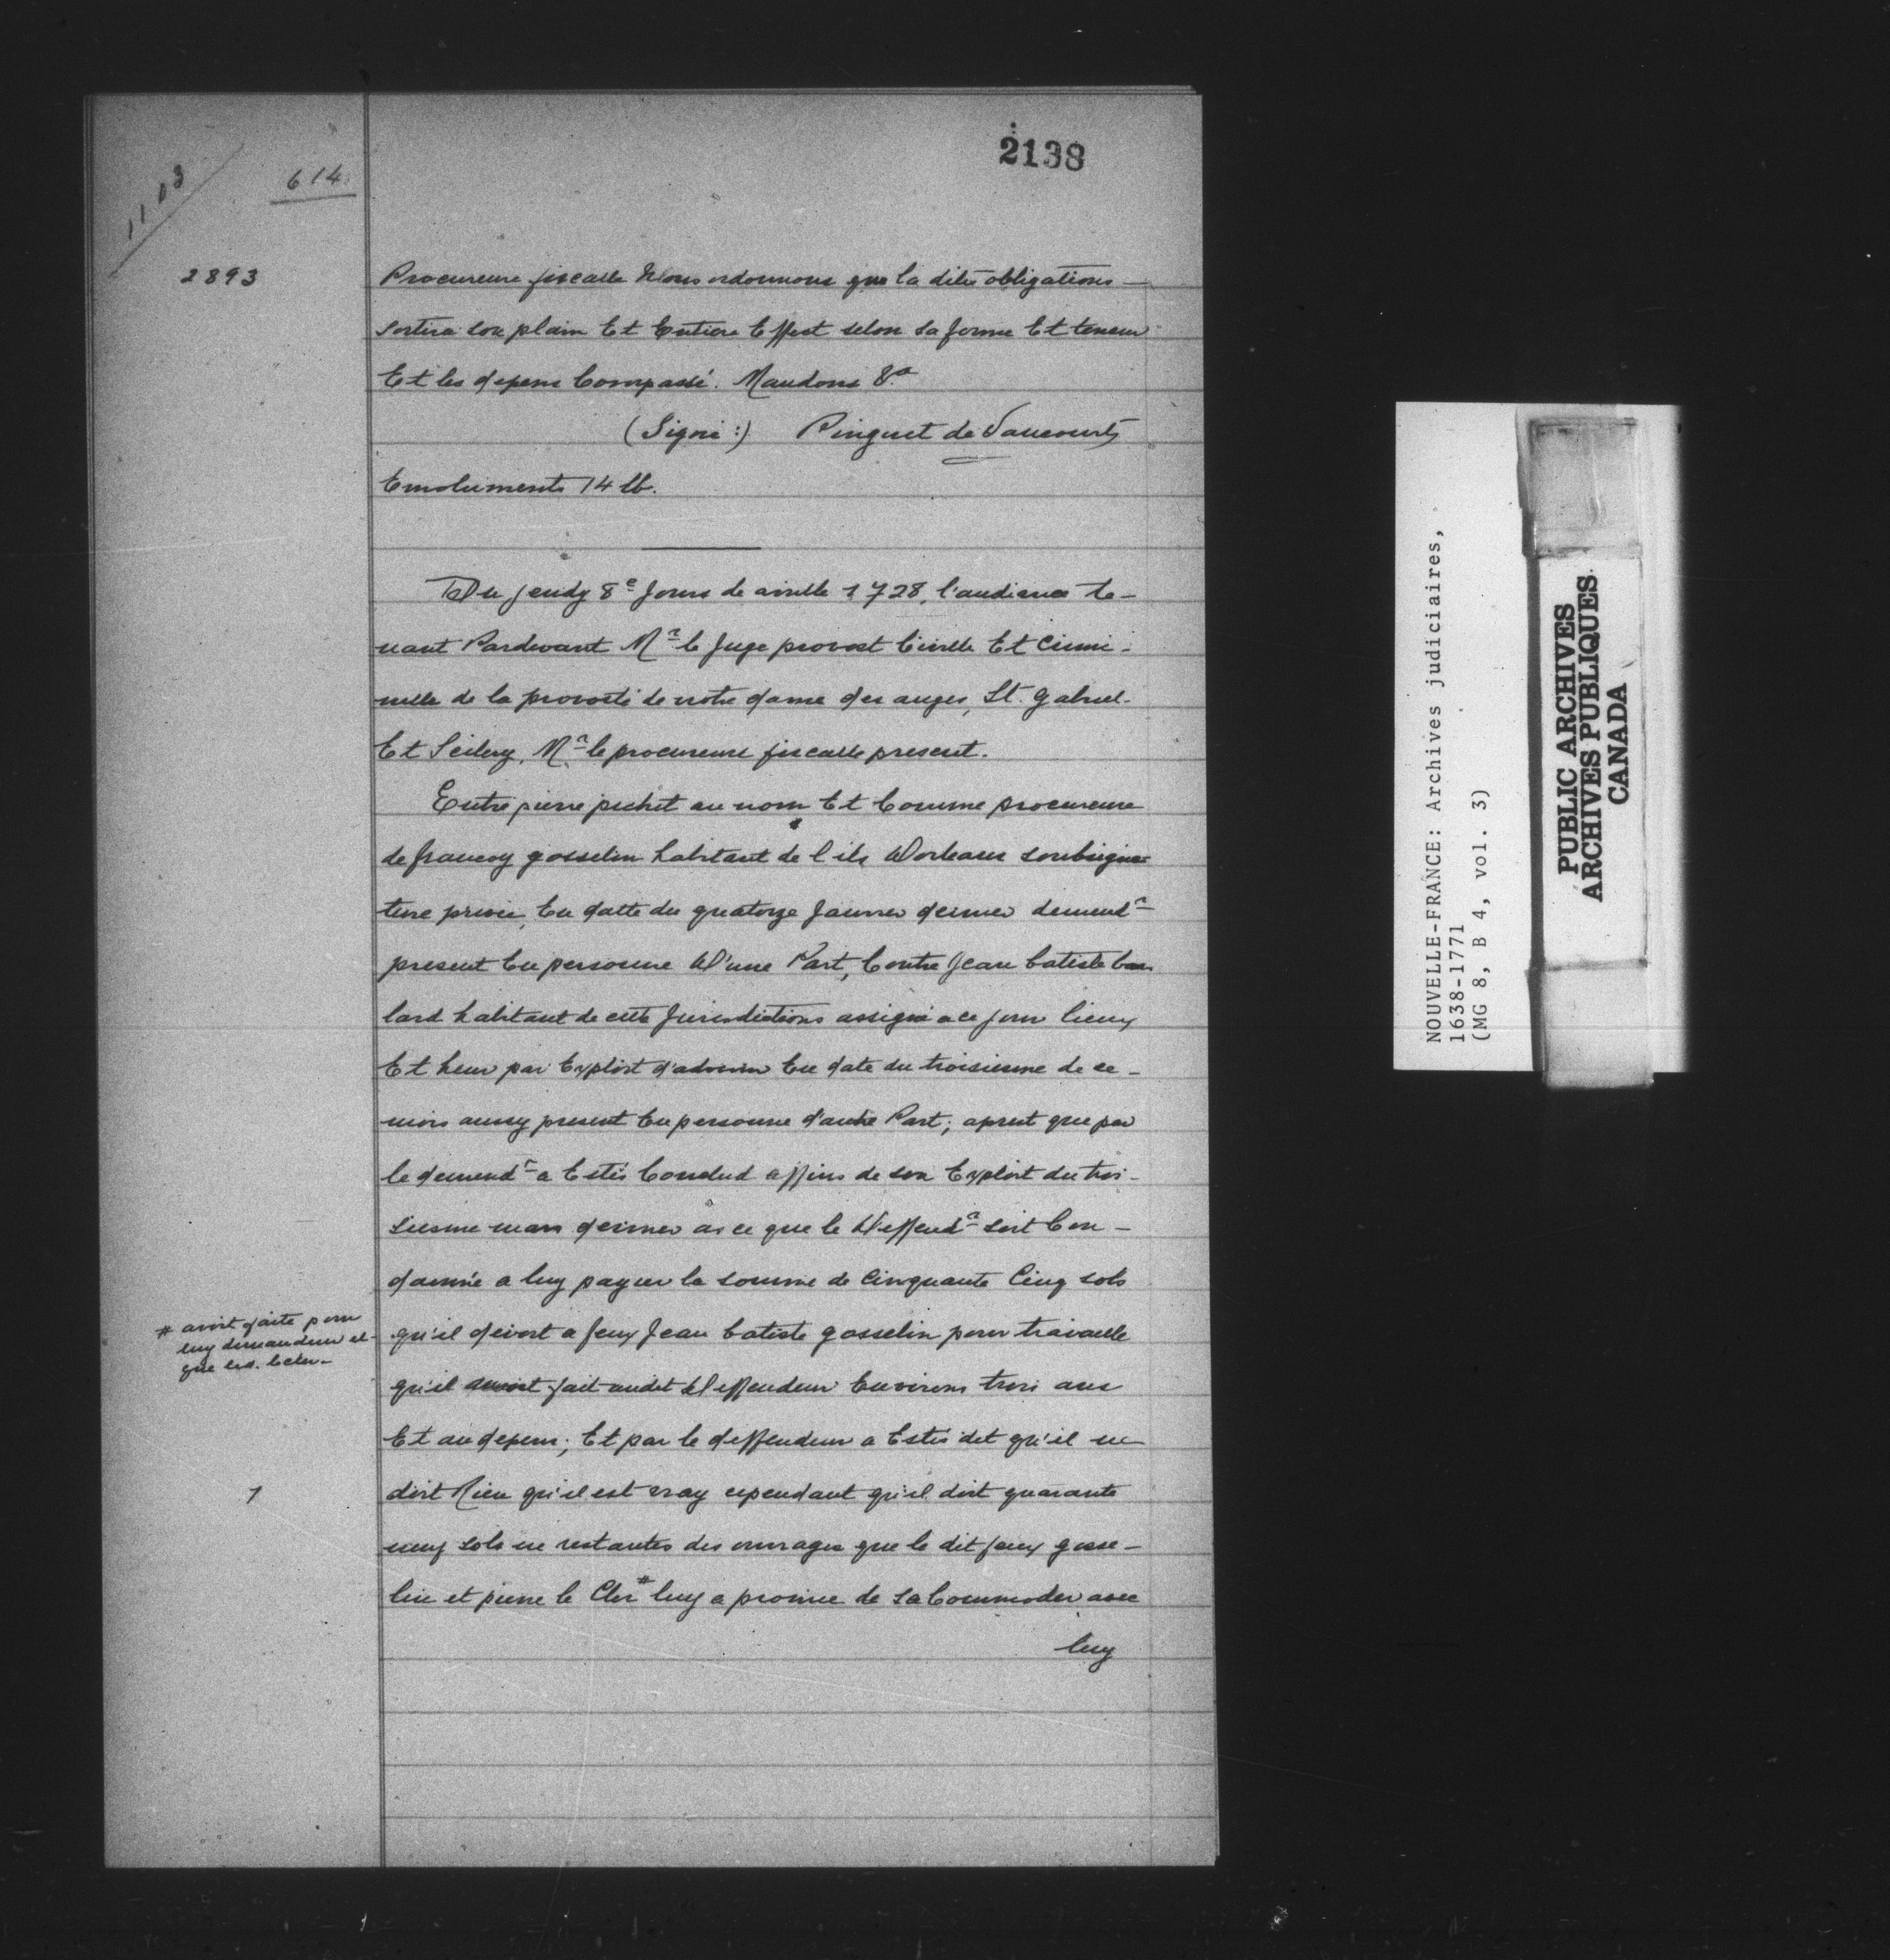 2138
1103
614
2893
Procureure fiscalle Nous ordonnons que la dite obligations
sortira son plain Et Entiere Effect selon sa forme Et teneur
Et les depens Compassé. Mandons &a
(Signé:) Pinguet de Vaucourt
Emoluments 14 lb.
Du jeudy 8e Jours de avrille 1728, l'audiance te-
nant Pardevant Mr le Juge provost Civille Et Crimi-
nelle de la provosté de notre dame des anges, St. gabriel
Et Seilery, Mr le procureure fiscalle present.
Entre pierre pichet au nom Et Comme procureure
de francoy gosselin habitant de l'ile Dorleans soubsigna-
ture privée, En datte du quatorze Janvier dernier demendr
present En personne D'une Part, Contre Jean batiste
lard habitant de cette Jurisdictions assigné a ce jour lieux
Et heur par Exploit En date du troisiesme de ce
mois aussy present En personne d'autre Part; aprest que par
le demendr a Estés Conclud affins de son Exploit du troi-
siesme mars dernier as ce que le Deffendr soit Con-
damnée a luy payer la somme de Cinquante Cinq sols
qu'il devoit a feux Jean batiste gosselin pour travaille
qu'il avoit fait audit Deffendeur Environs trois ans
Et au depens; Et par le deffendeur a Estés dit qu'il ne
doit Rien qu'il est vray cependant qu'il doit quarante
neuf sols ne restantes des ouvrages que le dit feux gosse-
lin et pierre le Cler # luy a promie de sa Commoder avec
luy
# avoit faite pour
luy demandeur et
que led. lecler
1
NOUVELLE-FRANCE: Archives judiciaires,
1638-1771
(MG 8, B 4, vol. 3)
PUBLIC ARCHIVES
ARCHIVES PUBLIQUES
CANADA